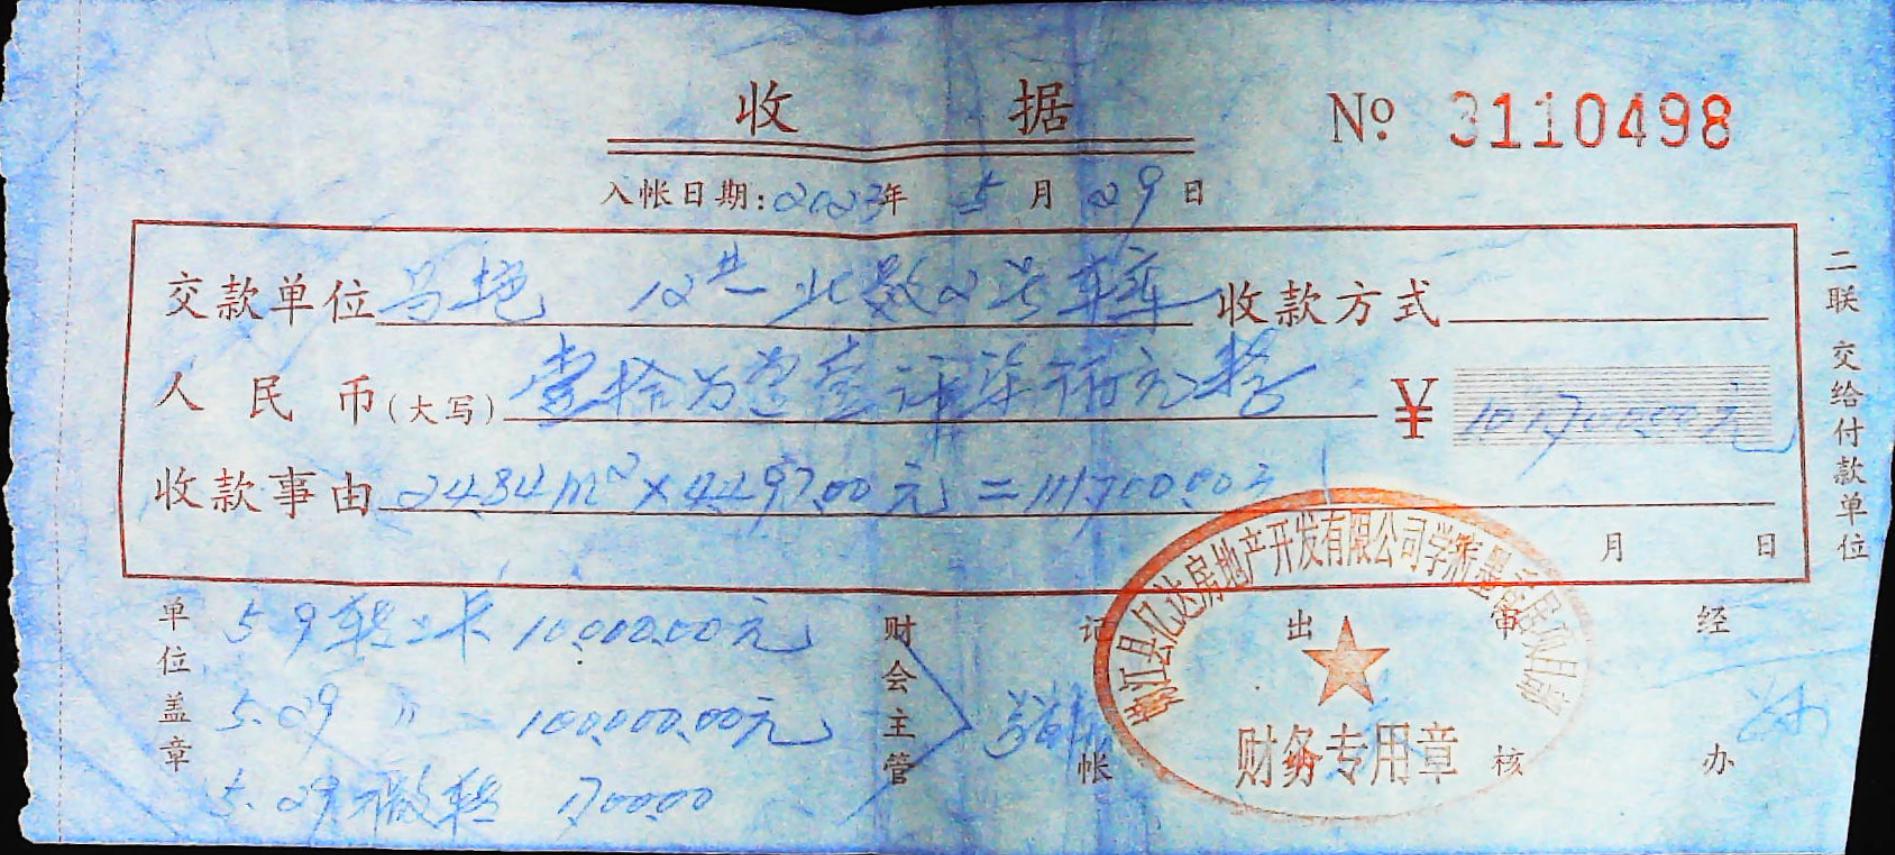 收 据
№ 3110498
入帐日期:2023年 5月 29日
交款单位 马艳 12# 北数2号车库 收款方式
人民币(大写) 壹拾万 壹仟柒佰元整 ¥ 101,700.00元
收款事由 24.84m²×4497.00元=111,700.00元
月 日
二联 交给付款单位
单位盖章
5.9 转上卡 10,000.00元
5.29 〃 100,000.00元
5.29 微转 1,700.00
财会主管
记帐
出纳
审核
经办
嫩江县亿达房地产开发有限公司学府
财务专用章